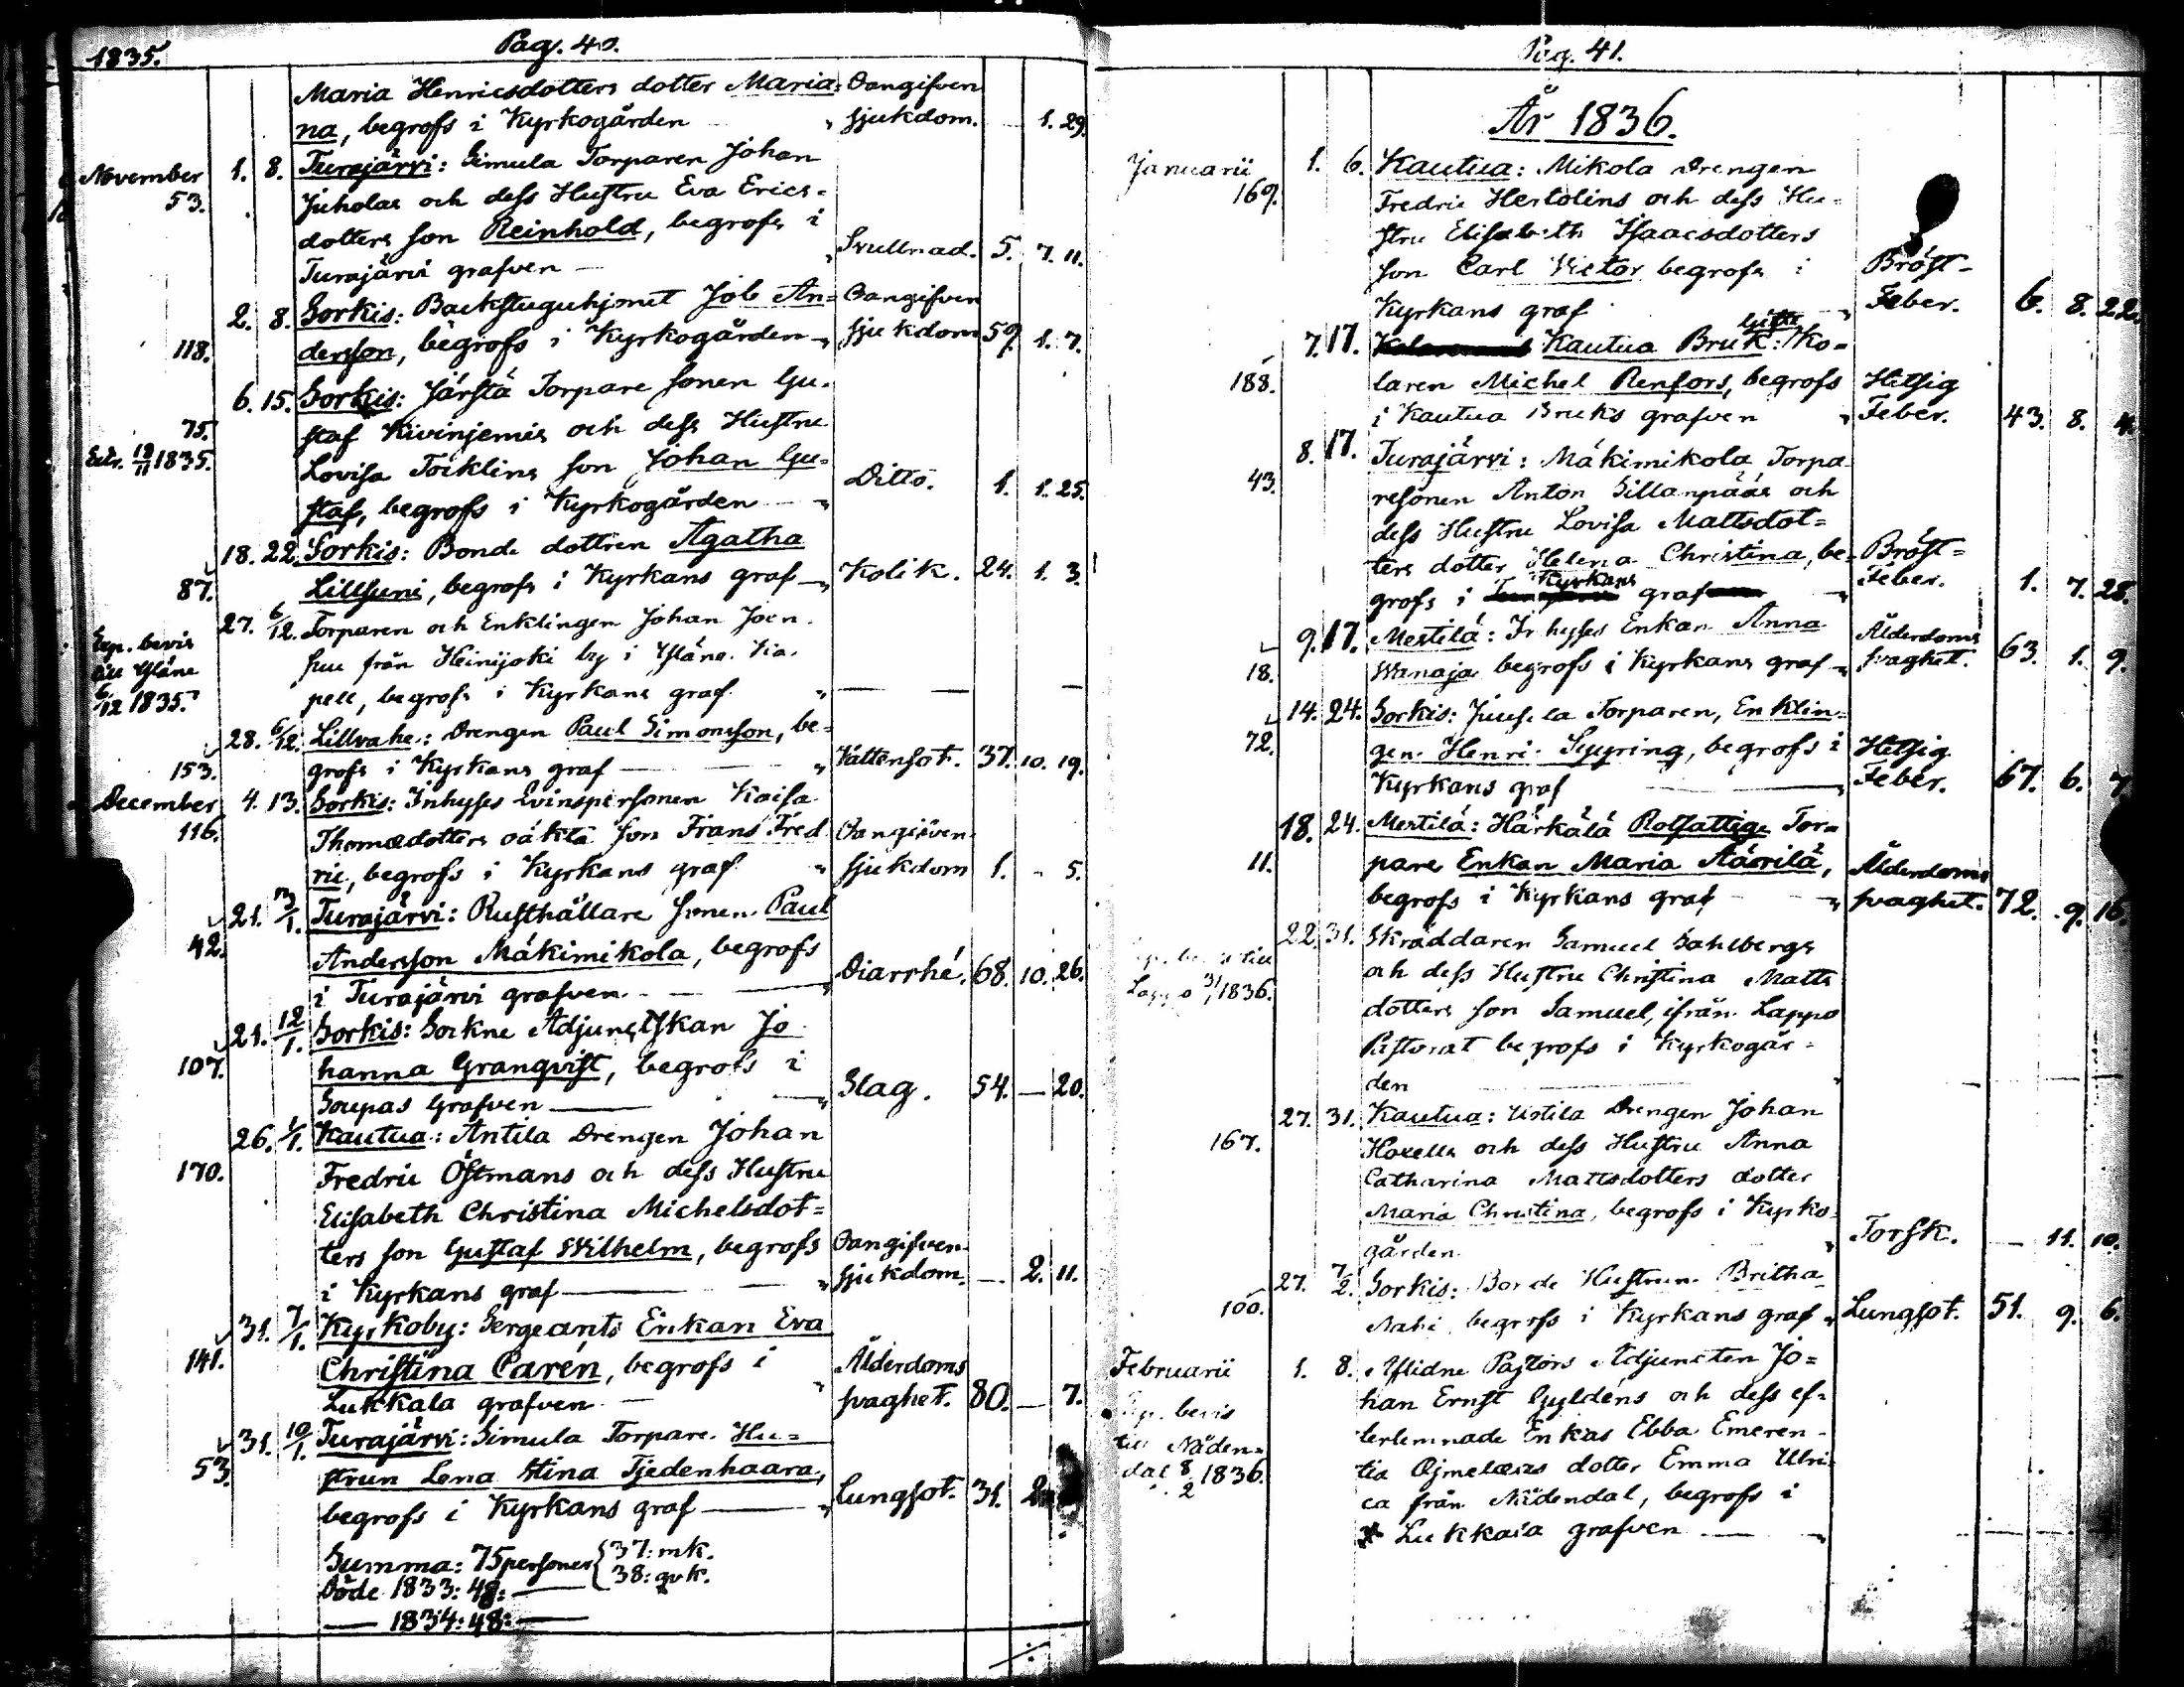 1835. Pag. 40.
Maria Henricsdotters dotter Maria= Oangifven
na, begrofs i Kyrkogården " sjukdom. 1. 29.
November 1. 8. Turajärvi: Simula Torparen Johan
53. Juholas och dess Hustru Eva Erics=
dotters son Reinhold, begrofs i
Turajärvi grafven — " Svullnad. 5. 7. 11.
2. 8. Sorkis: Backstuguhjonet Job An= Oangifven
118. dersson, begrofs i Kyrkogården — " sjukdom 59. 1. 7.
6. 15. Sorkis: Järstä Torpare sonen Gu-
75. staf Kivinjemis och dess Hustru
Extr. 18/11 1835. Lovisa Tocklins son Johan Gu-
staf, begrofs i Kyrkogården — " Ditto. 1. 1. 25.
18. 22. Sorkis: Bonde dottren Agatha
87. Lillsuni, begrofs i Kyrkans graf — " Kolik. 24. 1. 3.
27. 6/12. Torparen och Enklingen Johan Joen-
Exp. bevis suu från Heinijoki by i Yläne Ka-
till Yläne pell, begrofs i Kyrkans graf " — — —
6/12 1835.
28. 6/12. Lillvahe: Drengen Paul Simonsson, be=
153. grofs i Kyrkans graf — " Vattensot. 37. 10. 19.
December 4. 13. Sorkis: Inhyses Qvinspersonen Kaisa
116. Thomædotters oäkta son Frans Fred- Oangifven
ric, begrofs i Kyrkans graf " sjukdom 1. - 5.
21. 3/1. Turajärvi: Rusthållare sonen Paul
42. Andersson Mäkimikola, begrofs
i Turajärvi grafven. — " Diarrhé. 68. 10. 26.
21. 12/1. Sorkis: Sockne Adjunctskan Jo-
107. hanna Granqvist, begrofs i
Soupas Grafven — " Slag. 54. — 20.
26. 1/1. Kautua: Antila Drengen Johan
170. Fredric Östmans och dess Hustru
Elisabeth Christina Michelsdot=
ters son Gustaf Wilhelm, begrofs Oangifven
i Kyrkans graf — " sjukdom. — 2. 11.
31. 7/1. Kyrkoby: Sergeants Enkan Eva
141. Christina Caren, begrofs i Ålderdoms
Lukkala grafven — " svaghet. 80. — 7.
31. 10/1. Turajärvi: Simula Torpare Hu=
53. strun Lena Stina Tjedenhaara,
begrofs i Kyrkans graf — " Lungsot. 31. 2.
Summa: 75 personer { 37: mk.
38: qvk.
Döde 1833: 48: —
— 1834: 48: —
Pag. 41.
År 1836.
Januarii 1. 6. Kautua: Mikola Drengen
169. Fredric Hertolins och dess Hu=
stru Elisabeth Isaacsdotters
son Carl Victor begrofs i Bröst-
Kyrkans graf " Feber. 6. 8. 22.
7. 17. Kautua Bruk: Gifte Ko=
188. laren Michel Renfors, begrofs Hetsig
i Kautua Bruks grafven " Feber. 43. 8. 4.
8. 17. Turajärvi: Mäkimikola Torpa-
43. resonen Anton Sillanpääs och
dess Hustru Lovisa Mattsdot=
ters dotter Helena Christina, be= Bröst=
grofs i Kyrkans graf " Feber. 1. 7. 28.
9. 17. Mestilä: Inhyses Enkan Anna Ålderdoms
18. Wanaja begrofs i Kyrkans graf " svaghet. 63. 1. 9.
14. 24. Sorkis: Juusela Torparen, Enklin=
72. gen Henric Syyring, begrofs i Hetsig
Kyrkans graf — " Feber. 67. 6. 7.
18. 24. Mestilä: Härkälä Rotfattige Tor=
11. pare Enkan Maria Äärilä, Ålderdoms
begrofs i Kyrkans graf — " svaghet. 72. 9. 16.
22. 31. Skräddaren Samuel Sahlbergs
Exp. bevis till och dess Hustru Christina Matts
Lappo 31/1 1836. dotters son Samuel, ifrån Lappo
Pastorat begrofs i Kyrkogår=
den "
27. 31. Kautua: Ustila Drengen Johan
167. Hoxells och dess Hustru Anna
Catharina Mattsdotters dotter
Maria Christina, begrofs i Kyrko-
gården " Torsk. — 11. 10.
27. 7/2. Sorkis: Bonde Hustrun Britha
100. Nahi, begrofs i Kyrkans graf " Lungsot. 51. 9. 6.
Februarii 1. 8. Aflidne Pastors Adjuncten Jo=
Exp. bevis han Ernst Gyldéns och dess ef=
till Nåden= terlemnade Enkas Ebba Emeren-
dal 8/2 1836. tia dotter Emma Ulri-
ca från Nådendal, begrofs i
Lukkala grafven — "